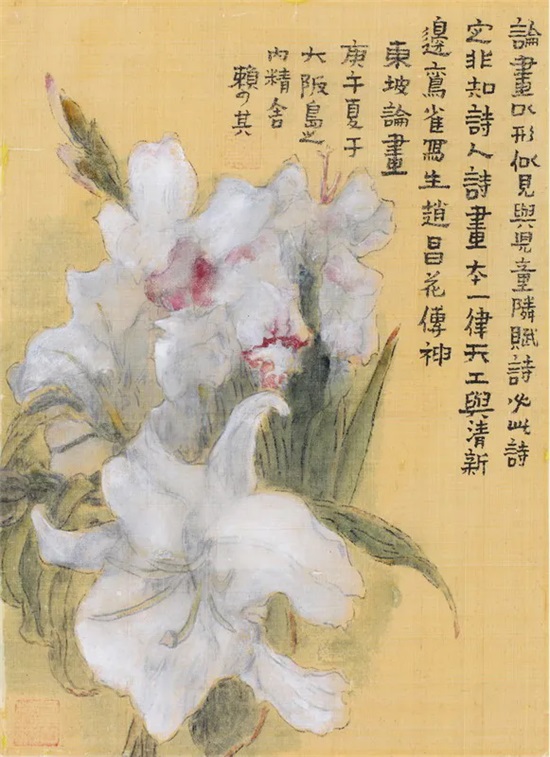 論畫以形似見與兒童隣賦詩必此詩
定非知詩人詩畫夲一律天工與清新
邊鸞雀寫生趙昌花傳神
東坡論畫
庚午夏于
大阪島之
內精舍
賴少其